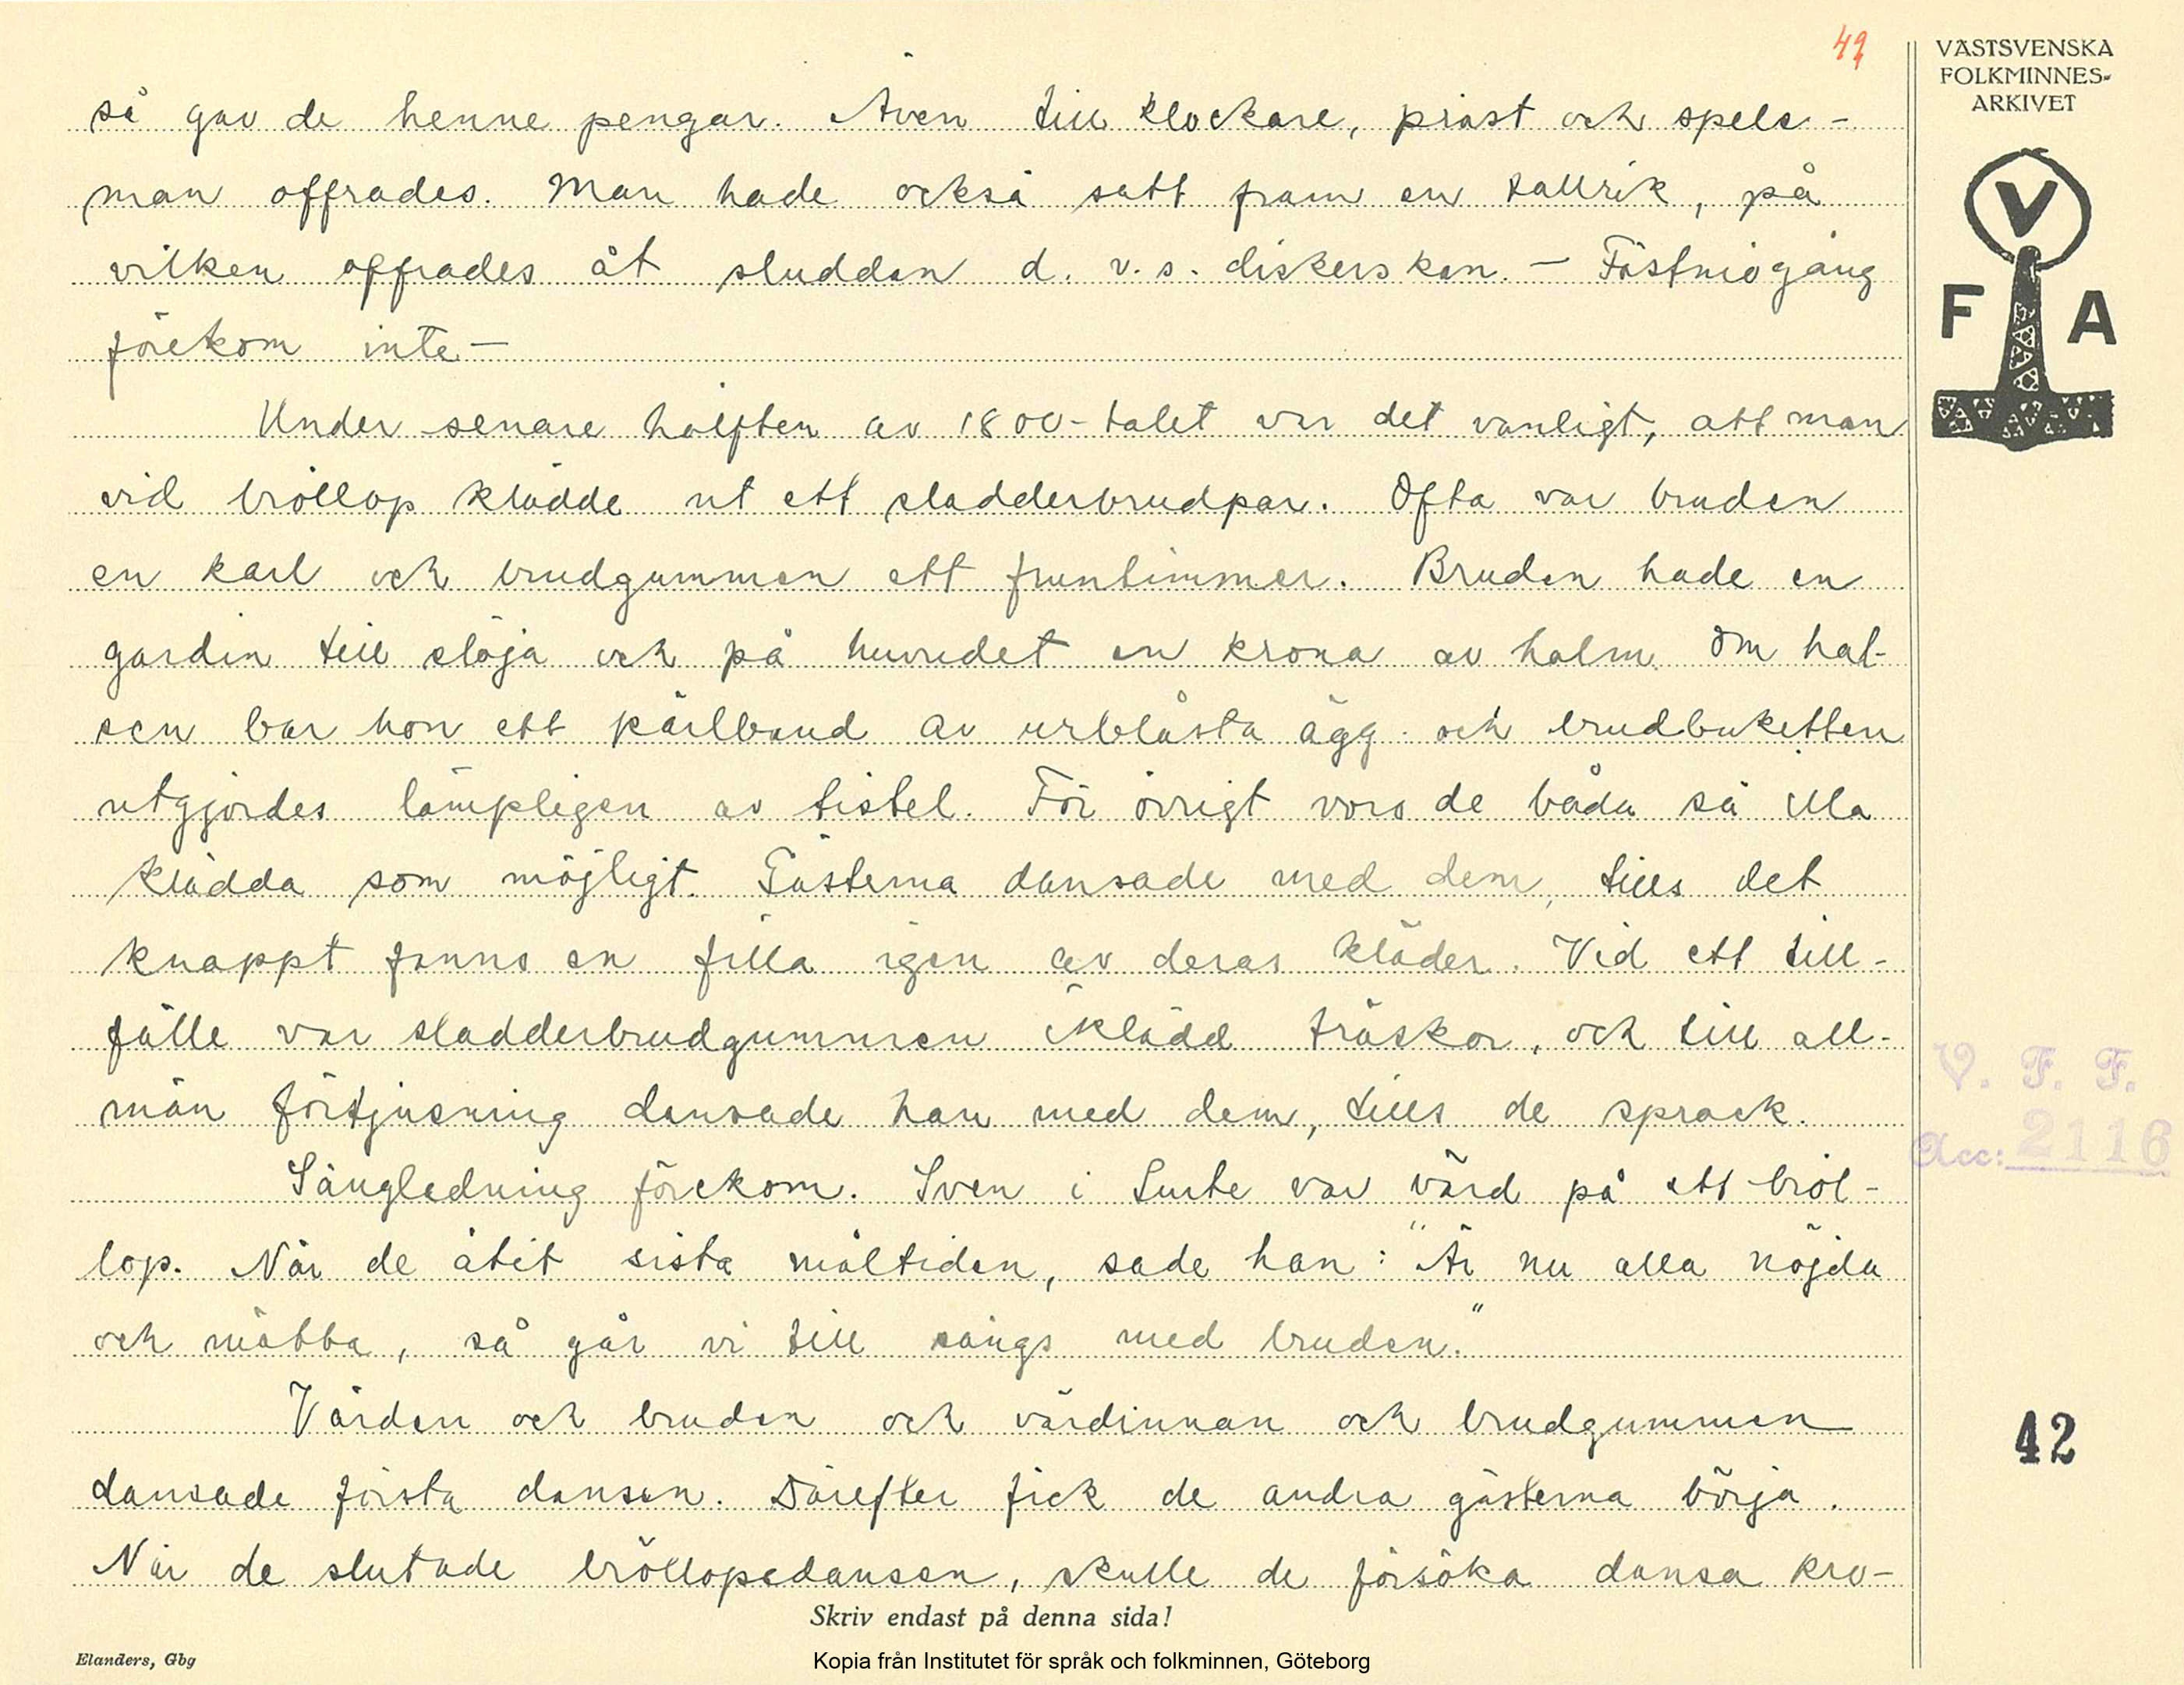 49
VÄSTSVENSKA
FOLKMINNES-
ARKIVET
V
F A
så gav de henne pengar. Även till klockare, präst och spele-
man offrades. Man hade också satt fram en tallrik, på
vilken offrades åt sluddan d. v. s. diskerskan. – Fästmögång
förekom inte –
Under senare hälften av 1800-talet var det vanligt, att man
vid bröllop klädde ut ett sladderbrudpar. Ofta var bruden
en karl och brudgummen ett fruntimmer. Bruden hade en
gardin till slöja och på huvudet en krona av halm. Om hal-
sen bar hon ett pärlband av urblåsta ägg och brudbuketten
utgjordes lämpligen av tistel. För övrigt voro de båda så illa
klädda som möjligt. Gästerna dansade med dem, tills det
knappt fanns en filla igen av deras kläder. Vid ett till-
fälle var sladderbrudgummen iklädd träskor, och till all-
män förtjusning dansade han med dem, tills de sprack.
Sängledning förekom. Sven i Surte var värd på ett bröl-
lop. När de ätit sista måltiden, sade han: "Är nu alla nöjda
och mätta, så går vi till sängs med bruden."
Värden och bruden och värdinnan och brudgummen
dansade första dansen. Därefter fick de andra gästerna börja.
När de slutade bröllopsdansen, skulle de försöka dansa kro-
V. F. F.
Acc: 2116
42
Skriv endast på denna sida!
Elanders, Gbg
Kopia från Institutet för språk och folkminnen, Göteborg